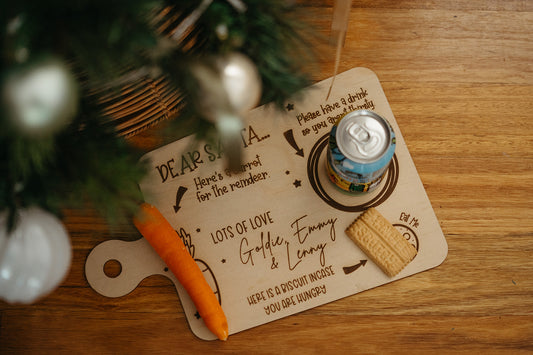 DEAR SANTA...
Here's a carrot
for the reindeer.
Please have a drink
so you aren't thirsty
LOTS OF LOVE
Goldie, Emmy
& Lenny
Eat Me
HERE IS A BISCUIT INCASE
YOU ARE HUNGRY